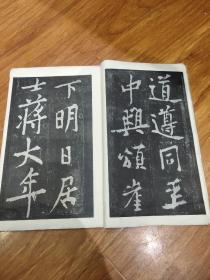 道遵同至
中興頌崖
下明日居
士蔣大年